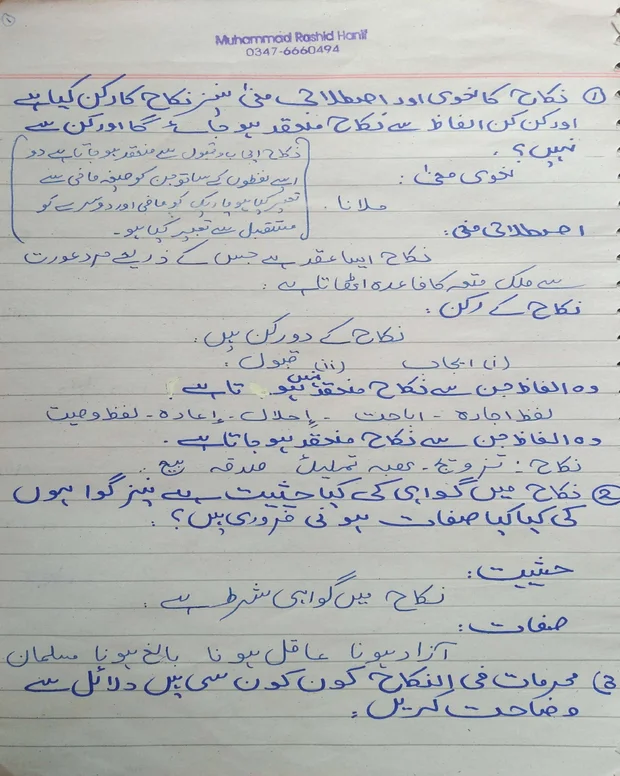 Muhammad Rashid Hanif
0347-6660494
① نکاح کا لغوی اور اصطلاحی معنیٰ نیز نکاح کا رکن کیا ہے
اور کن کن الفاظ سے نکاح منعقد ہو جائے گا اور کن سے
نہیں؟
نکاح ایجاب و قبول سے منعقد ہو جاتا ہے دو
ایسے لفظوں کے ساتھ جن کو صیغہ ماضی سے
تعبیر کیا ہو یا ایک کو ماضی اور دوسرے کو
مستقبل سے تعبیر کیا ہو۔
لغوی معنیٰ:
ملانا۔
اصطلاحی معنیٰ:
نکاح ایسا عقد ہے جس کے ذریعے مرد عورت
سے ملک متعہ کا فائدہ اٹھاتا ہے:
نکاح کے رکن:
نکاح کے دو رکن ہیں:
(i) ایجاب (ii) قبول:
وہ الفاظ جن سے نکاح منعقد نہیں ہو تا ہے:
لفظ اجارہ - اباحت - إحلال - إعادہ - لفظ وصیت
وہ الفاظ جن سے نکاح منعقد ہو جاتا ہے۔
نکاح: تزویج - ھبہ تملیک صدقہ بیع:
② نکاح میں گواہی کی کیا حثییت ہے نیز گواہوں
کی کیا کیا صفات ہونی ضروری ہیں؟:
حثییت:
نکاح میں گواہی شرط ہے:
صفات:
آزاد ہونا عاقل ہونا بالغ ہونا مسلمان
محرمات فی النکاح کون کون سی ہیں دلائل سے
وضاحت کریں: